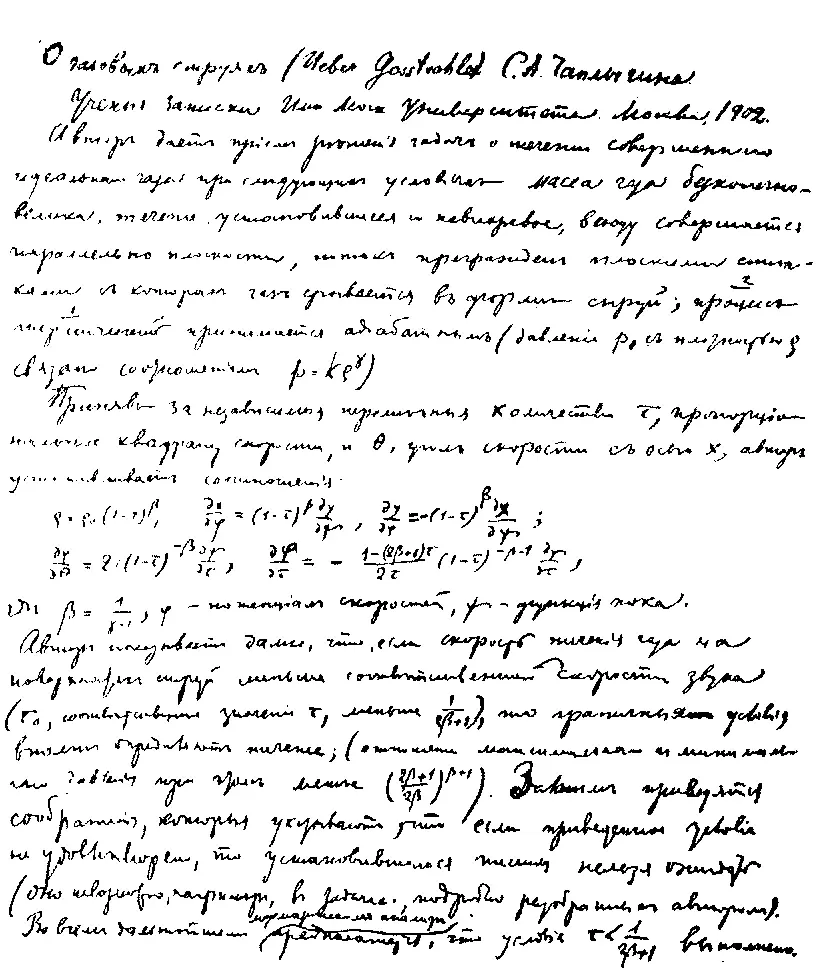 О газовыхъ струяхъ (Ueber Gasstrahlen) С.А. Чаплыгина
Ученыя Записки Имп. Моск. Университета. Москва, 1902.
Авторъ даетъ пріемъ рѣшенія задачъ о теченіи совершеннаго
идеальнаго газа при слѣдующихъ условіяхъ масса газа безконечно-
велика, теченіе установившееся и невихревое, всюду совершается
параллельно плоскости, потокъ прегражденъ плоскими стѣн-
ками съ которыхъ газъ срывается въ формѣ струй; процессъ
принимается адіабатнымъ (давленіе p, съ плотностью ρ
связано соотношеніемъ p = kρ^γ)
Принявъ за независимыя перемѣнныя количества τ, пропорціо-
нальное квадрату скорости, и θ, уголъ скорости съ осью X, авторъ
устанавливаетъ соотношенія
ρ = ρ₀(1-τ)^β, = (1-τ)^β , = -(1-τ)^β ;
= 2τ(1-τ)^{-β} , = - (1-(2β+1)τ)/2τ (1-τ)^{-β-1} ,
гдѣ β = 1/(γ-1), φ - потенціалъ скоростей, ψ - функція тока.
Авторъ показываетъ далѣе, что, если скорость теченія газа на
поверхности струй меньше соотвѣтственной скорости звука
(τ₀, соотвѣтственное значеніе τ, меньше 1/(2β+1)), то граничныя условія
вполнѣ опредѣляютъ теченіе; (отношеніе максимальнаго и минималь-
наго давленія при этомъ меньше ((2β+1)/2β)^{β+1}). Затѣмъ приводятся
соображенія, которыя указываютъ, что если приведенное условіе
не удовлетворено, то установившагося теченія нельзя ожидать
(оно невозможно, напримѣръ, въ задачѣ, подробно разобранной авторомъ).
Во всемъ дальнѣйшемъ предполагается, что условіе τ < 1/(2β+1) выполнено.